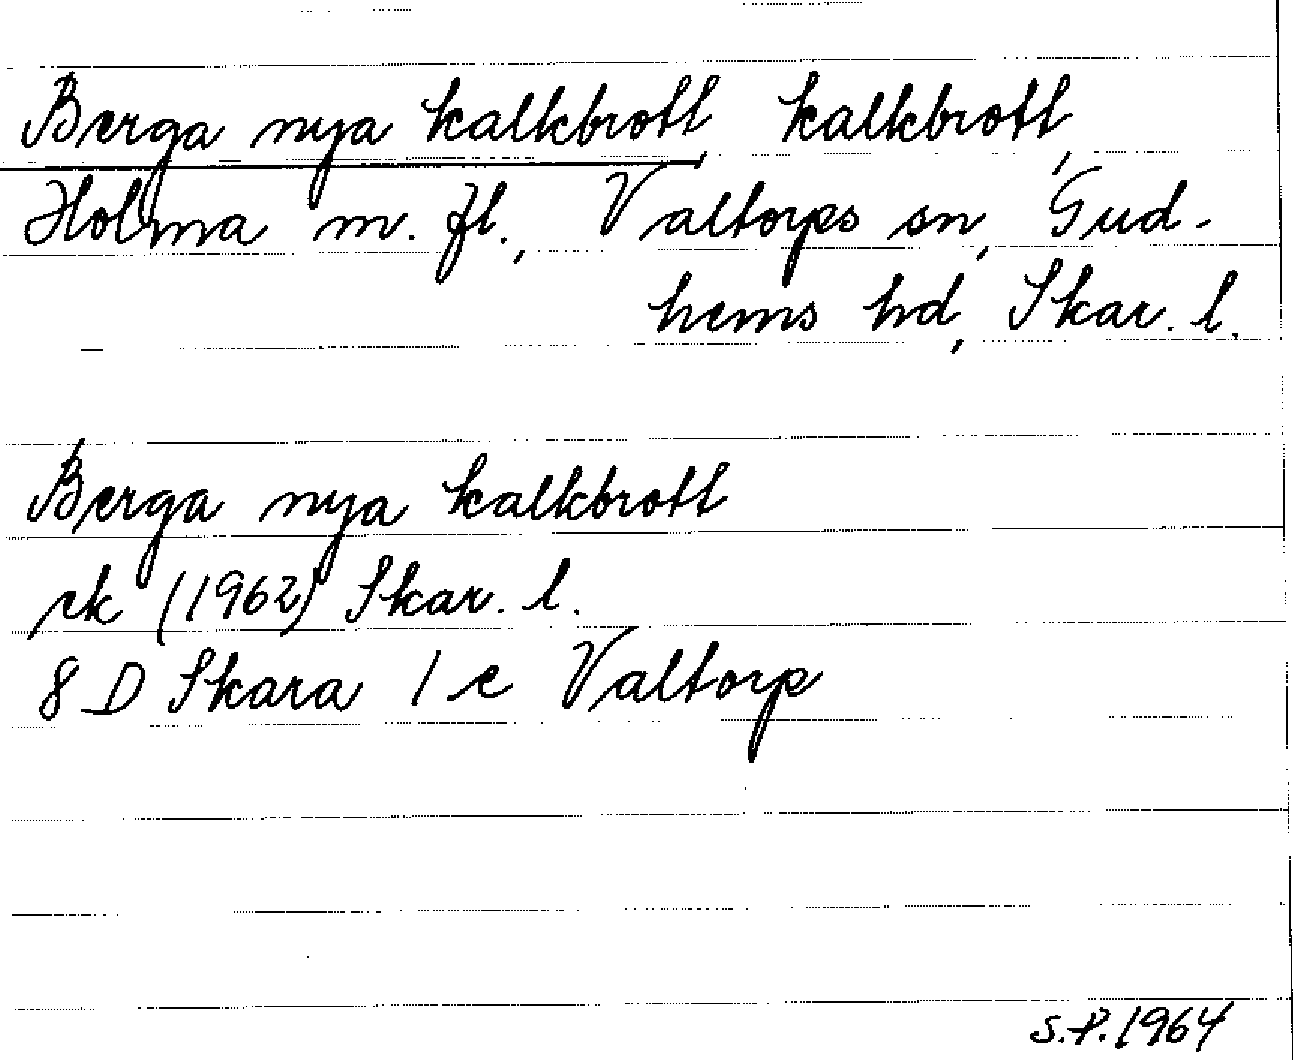 Berga nya kalkbrott, kalkbrott,
Holma m. fl., Valtorps sn, Gud-
hems hd, Skar. l.
Berga nya kalkbrott
ek (1962) Skar. l.
8 D Skara 1 e Valtorp
S.P. 1964